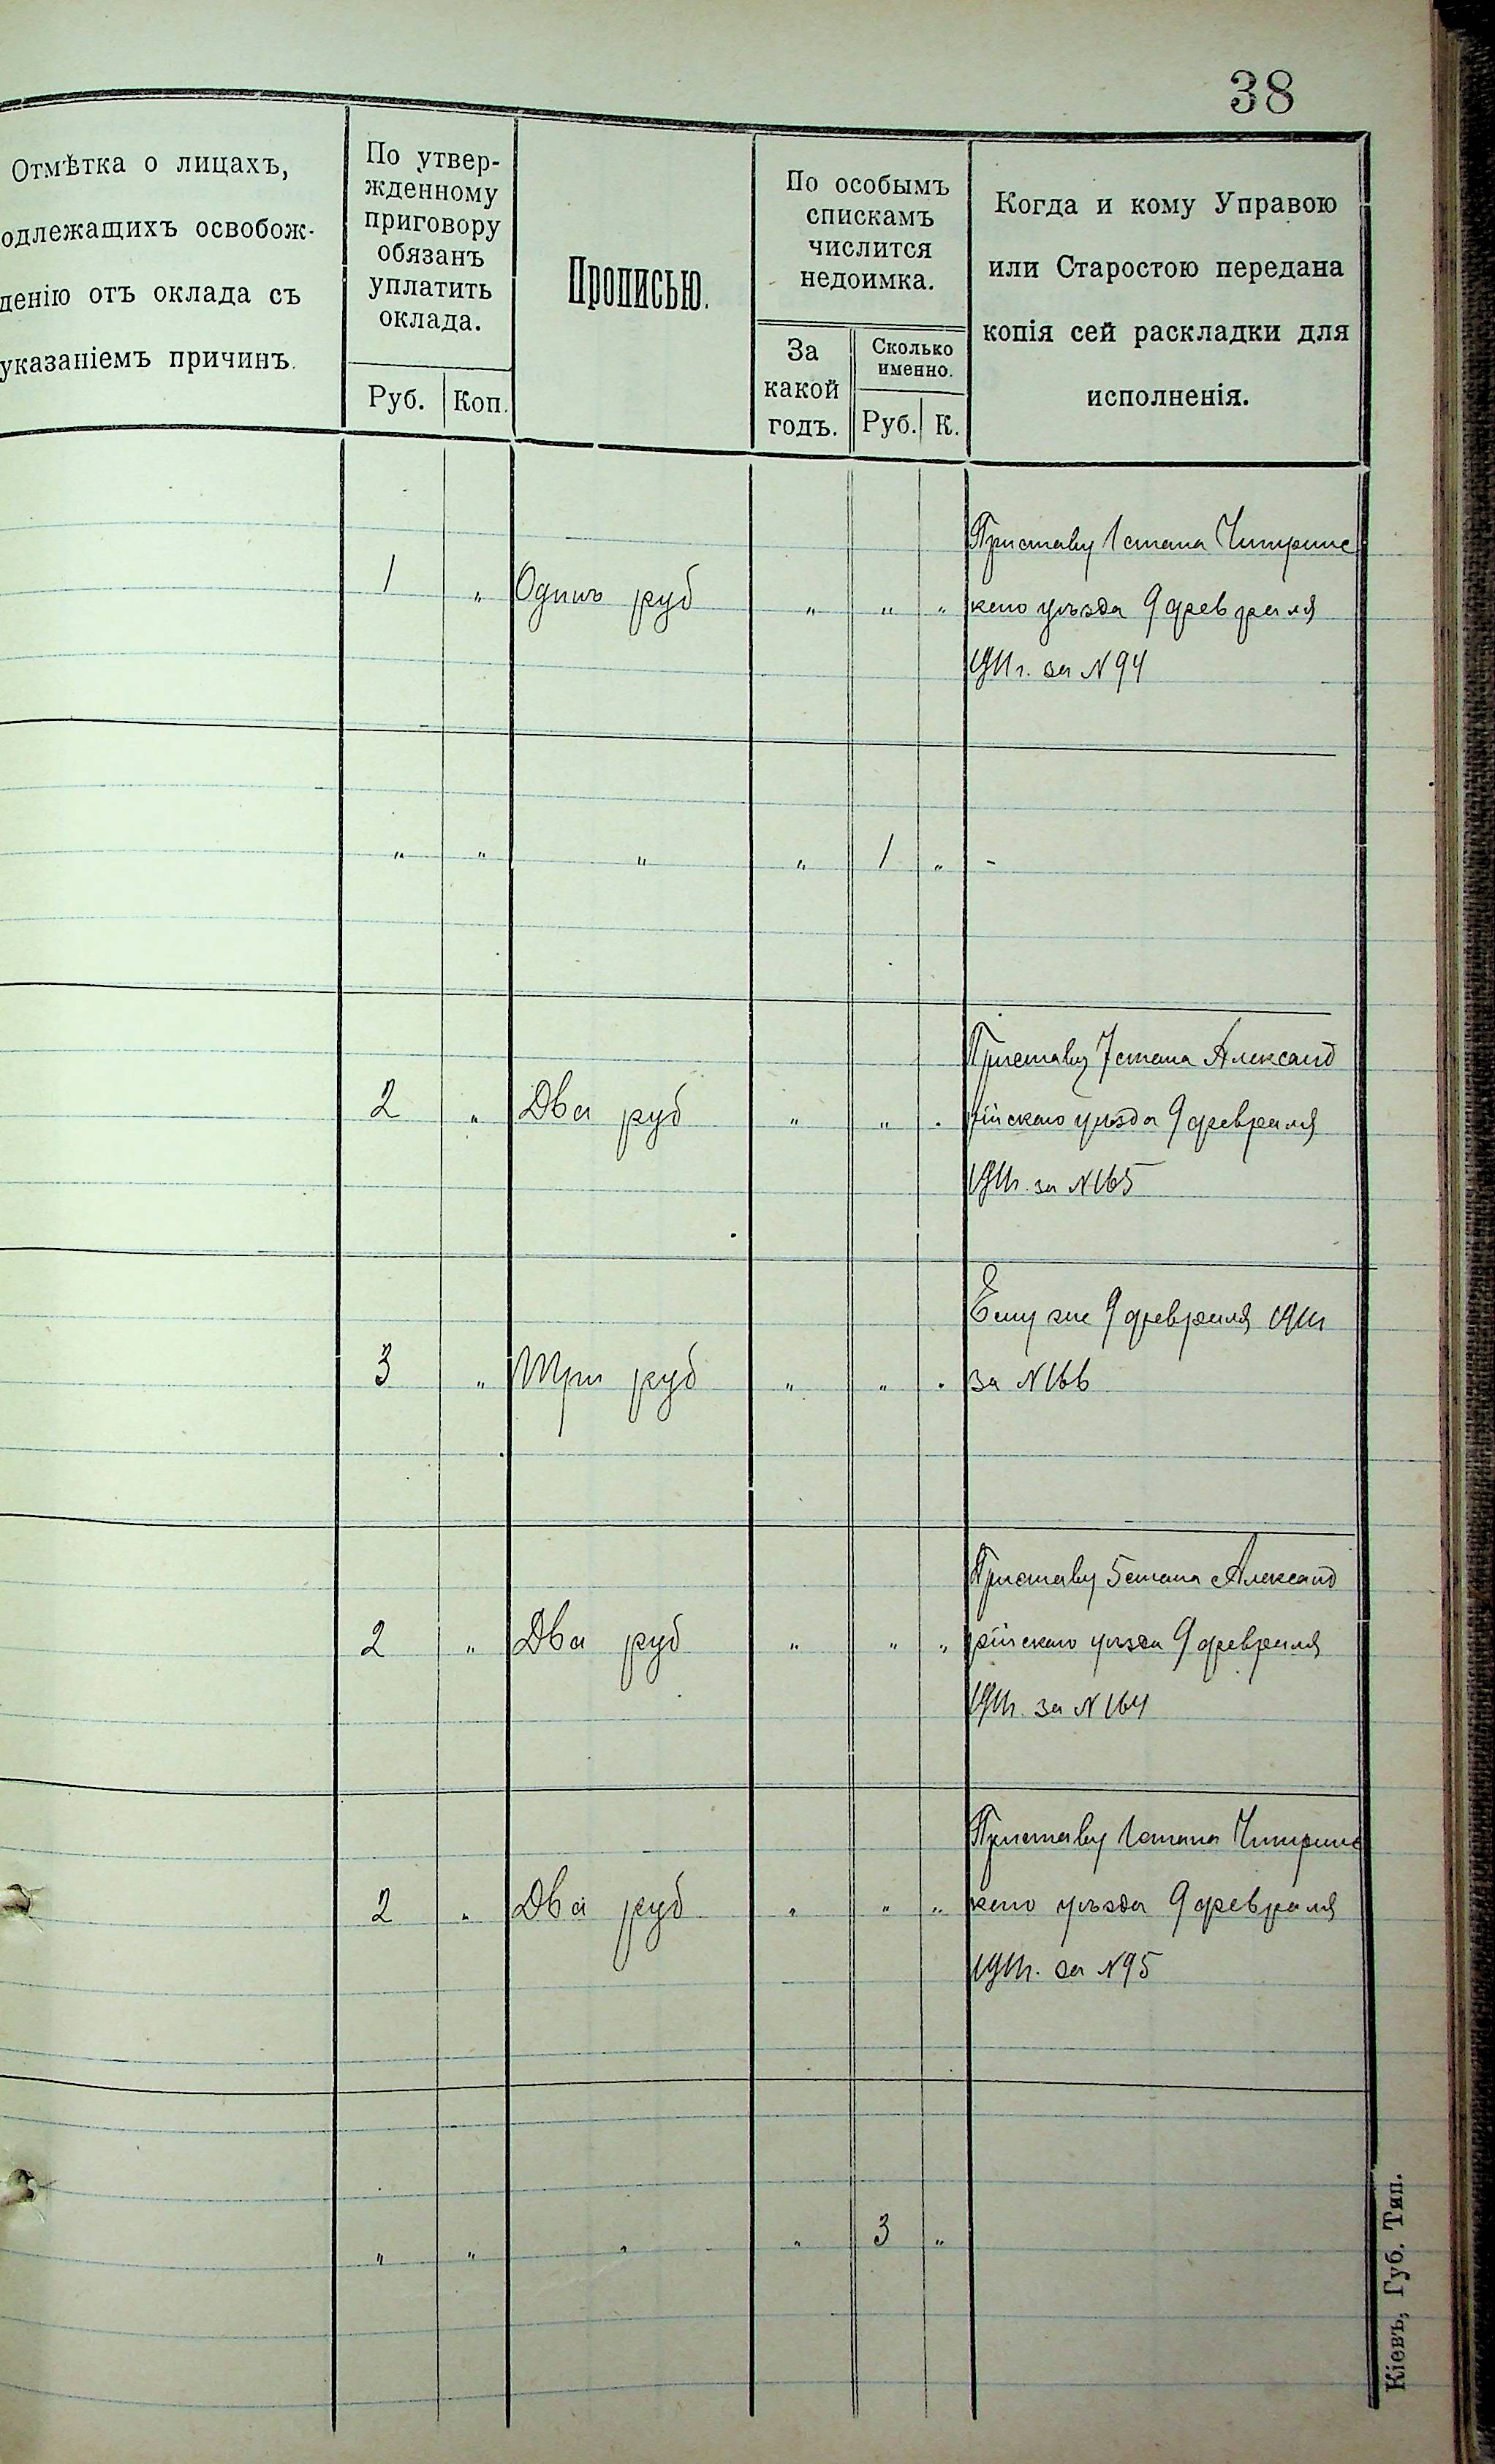 38
Отмѣтка о лицахъ,
одлежащихъ освобож-
денію отъ оклада съ
указаніемъ причинъ.
По утвер-
жденному
приговору
обязанъ
уплатить
оклада.
Руб. Коп.
Прописью.
По особымъ
спискамъ
числится
недоимка.
За
какой
годъ.
Сколько
именно.
Руб. К.
Когда и кому Управою
или Старостою передана
копія сей раскладки для
исполненія.
Приставу 1 стана Чигринс
1 " Одинъ руб " " " каго уѣзда 9 февраля
1911 г. за N 94
" " " " 1 " -
Приставу 7 стана Александ
2 " Два руб " " " рійскаго уѣзда 9 февраля
1911 г. за N 165
Ему же 9 февраля 1911
3 " Три руб " " " за N 166
Приставу 5 стана Александ
2 " Два руб " " " рійскаго уѣзда 9 февраля
1911 г. за N 164
Приставу 1 стана Чигринс
2 " Два руб " " " каго уѣзда 9 февраля
1911 г. за N 95
" " " " 3 "
Кіевъ, Губ. Тип.